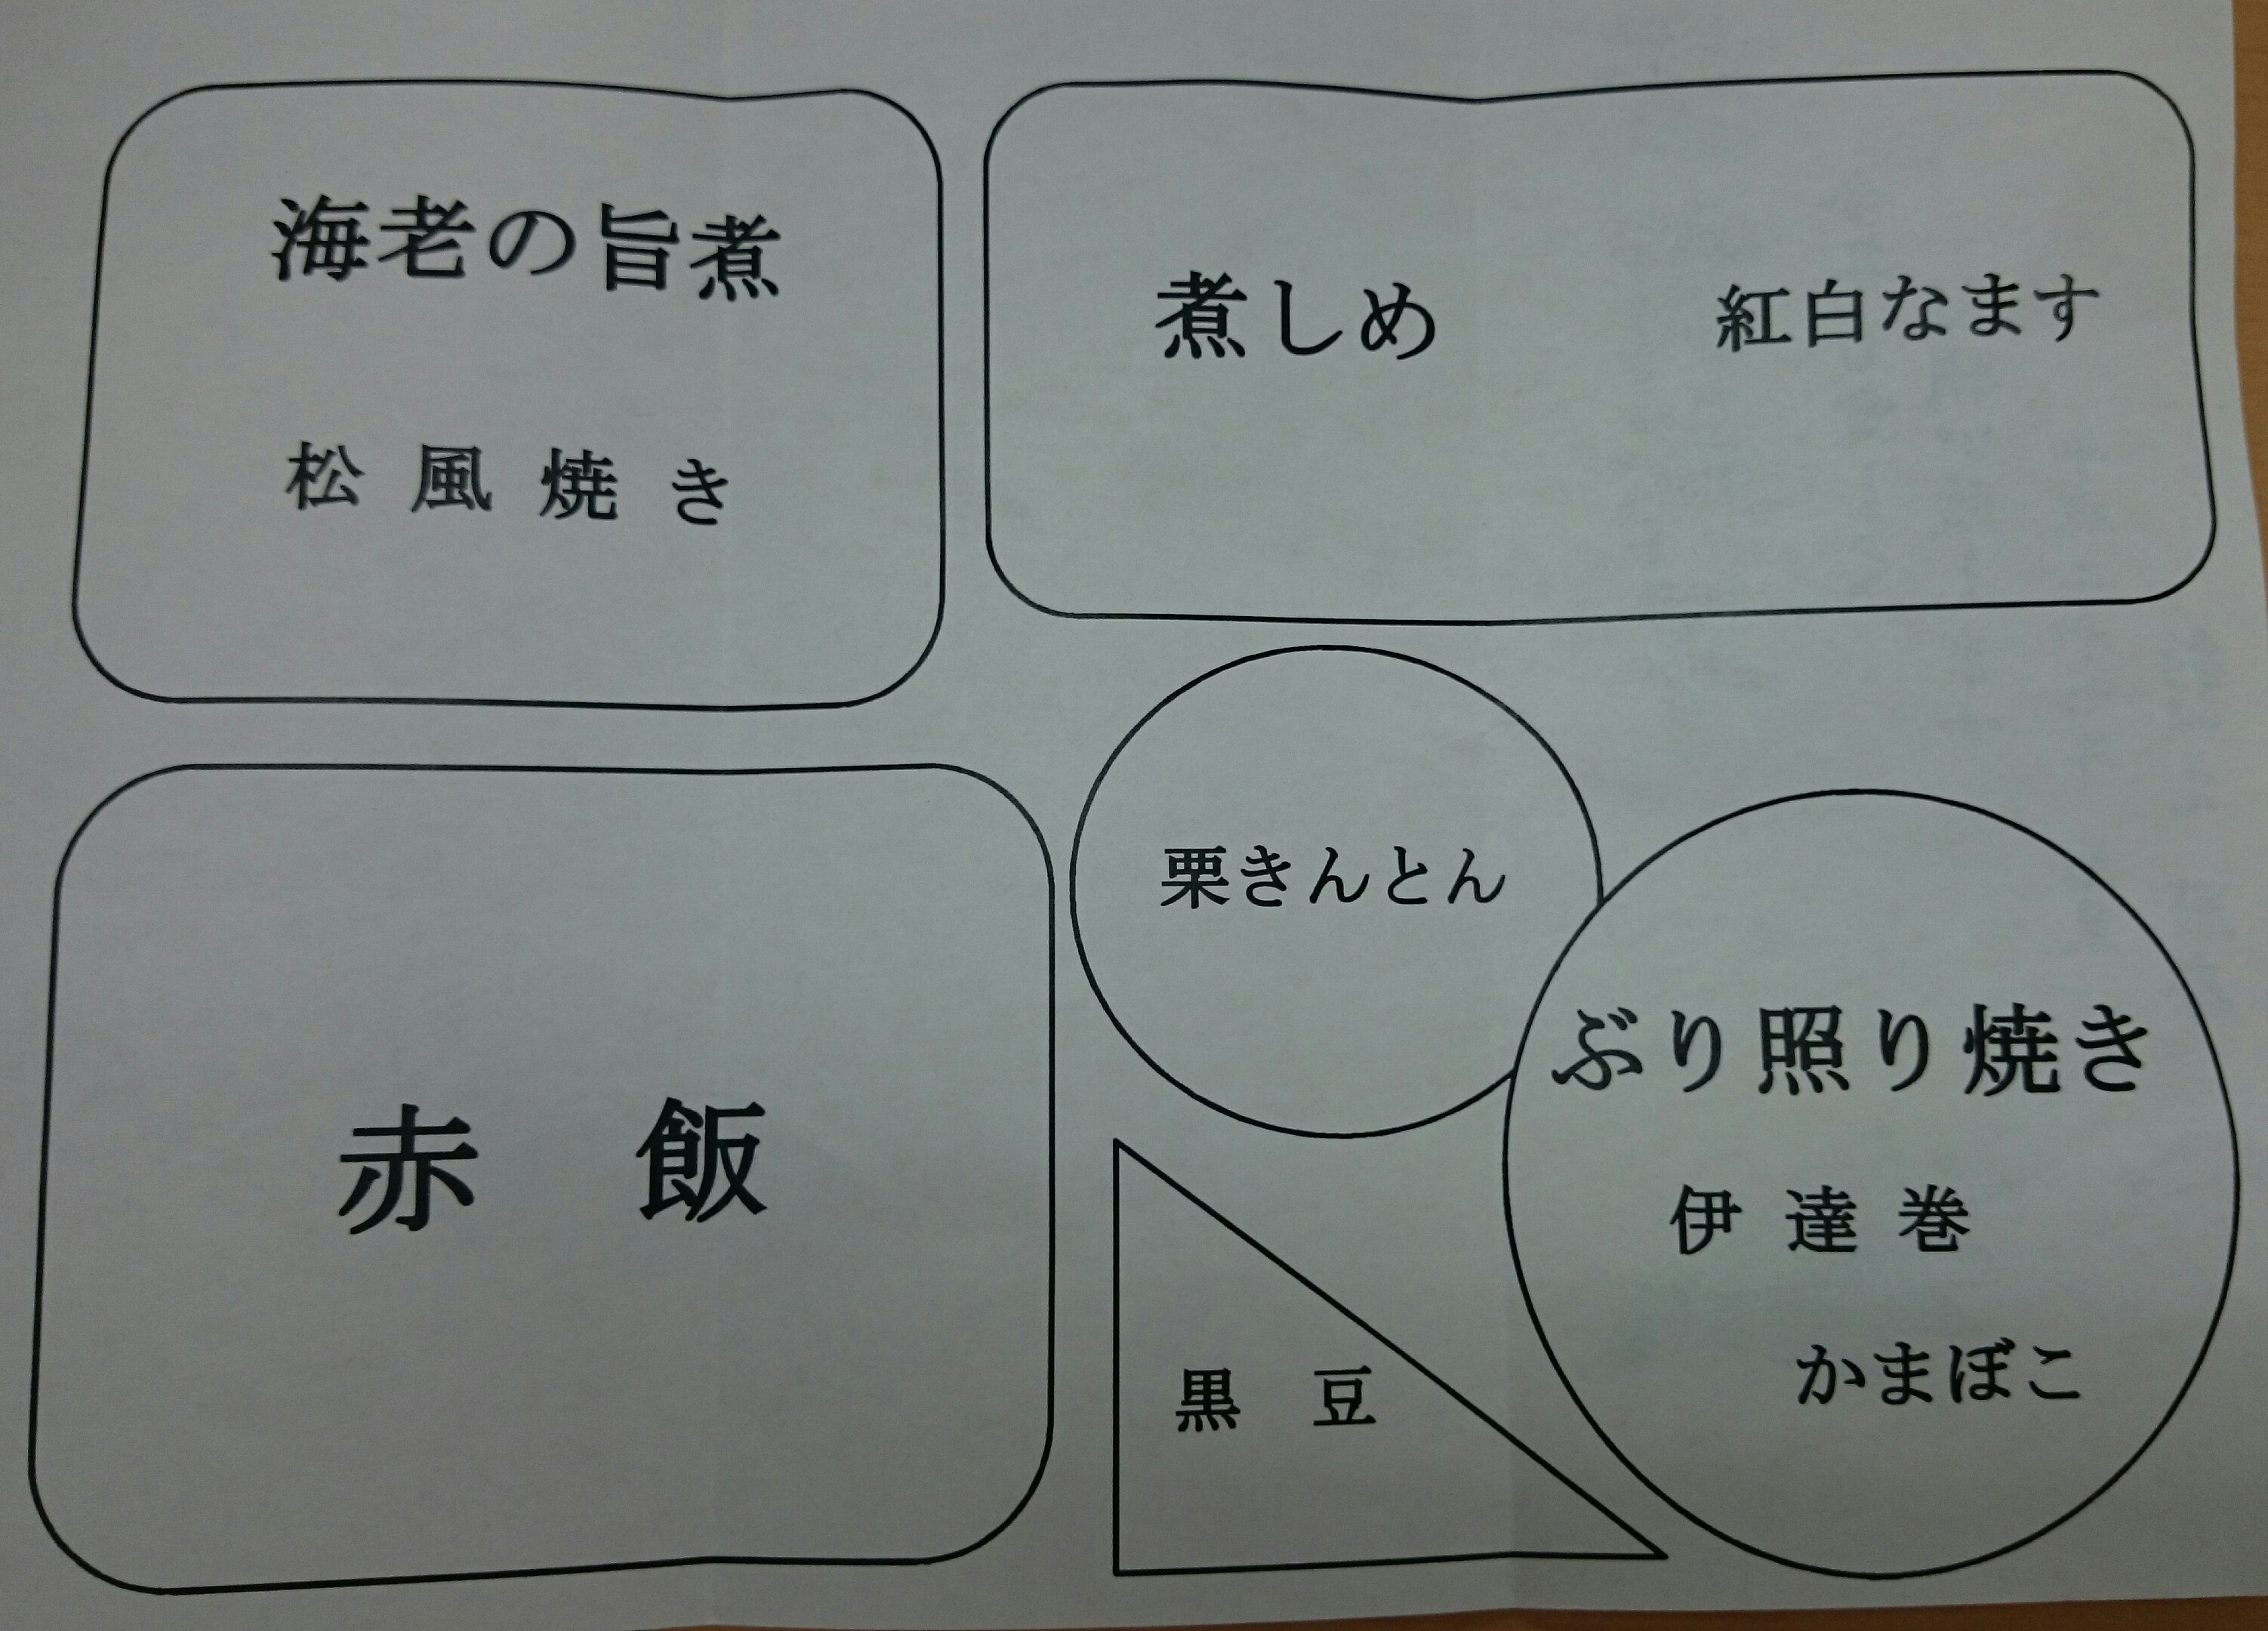 海老の旨煮
松風焼き
煮しめ 紅白なます
栗きんとん
赤飯
ぶり照り焼き
伊達巻
かまぼこ
黒豆